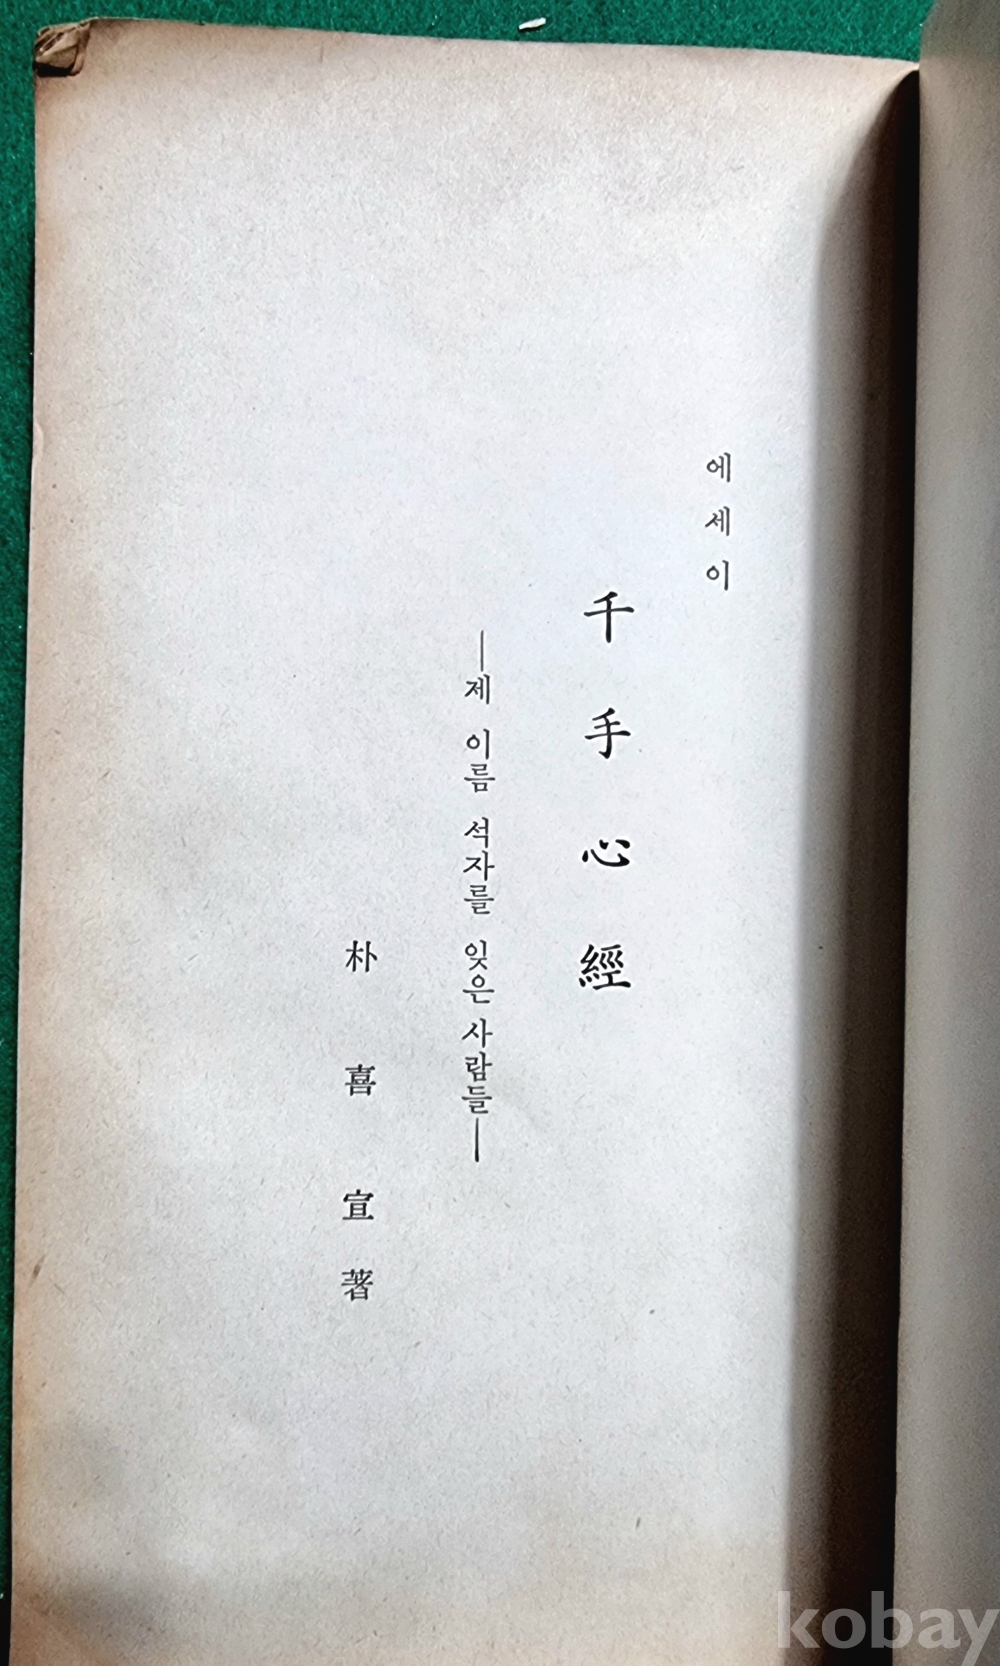 에세이
千手心經
―제 이름 석자를 잊은 사람들―
朴喜宣 著
kobay